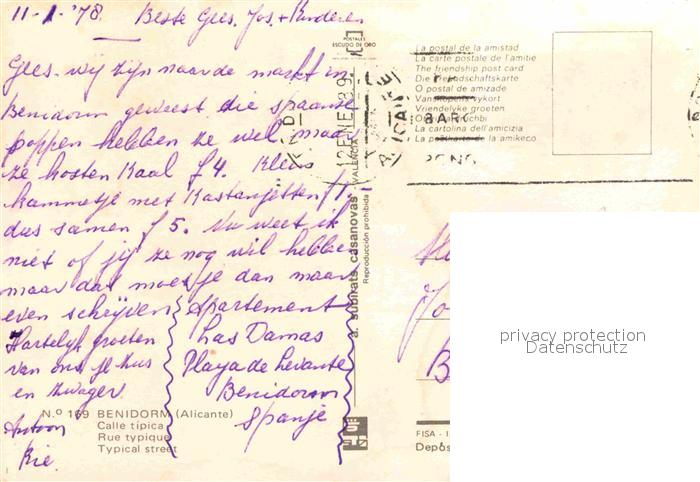 11-1-'78. Beste Gees. Jos. + Kinderen
Gees. wij zijn naar de markt in
Benidorm geweest die spaanse
poppen hebben ze wel, maar
ze kosten Kaal f4. Klein
kammetje met Kastanjetten f1.
dus samen f5. Nu weet ik
niet of jij ze nog wil hebben
maar dat moet je dan maar
even schrijven
Hartelijk groeten
van ons je zus
en zwager
Antoon
Rie.
Apartement
Las Damas
Playa de Levante
Benidorm
Spanje
N.º 169 BENIDORM (Alicante)
Calle típica
Rue typique
Typical street
POSTALES
ESCUDO DE ORO
VALENCIA
a. subirats casanovas
Reproducción prohibida
12 ENE
ALICANTE
La postal de la amistad
La carte postale de l'amitie
The friendship post card
Die Freundschaftskarte
O postal de amizade
Vanskapets vykort
Vriendelyke groeten
La cartolina dell'amicizia
La poŝtkarto de la amikeco
BARC
Jo
B
FISA - I
Depós
privacy protection
Datenschutz